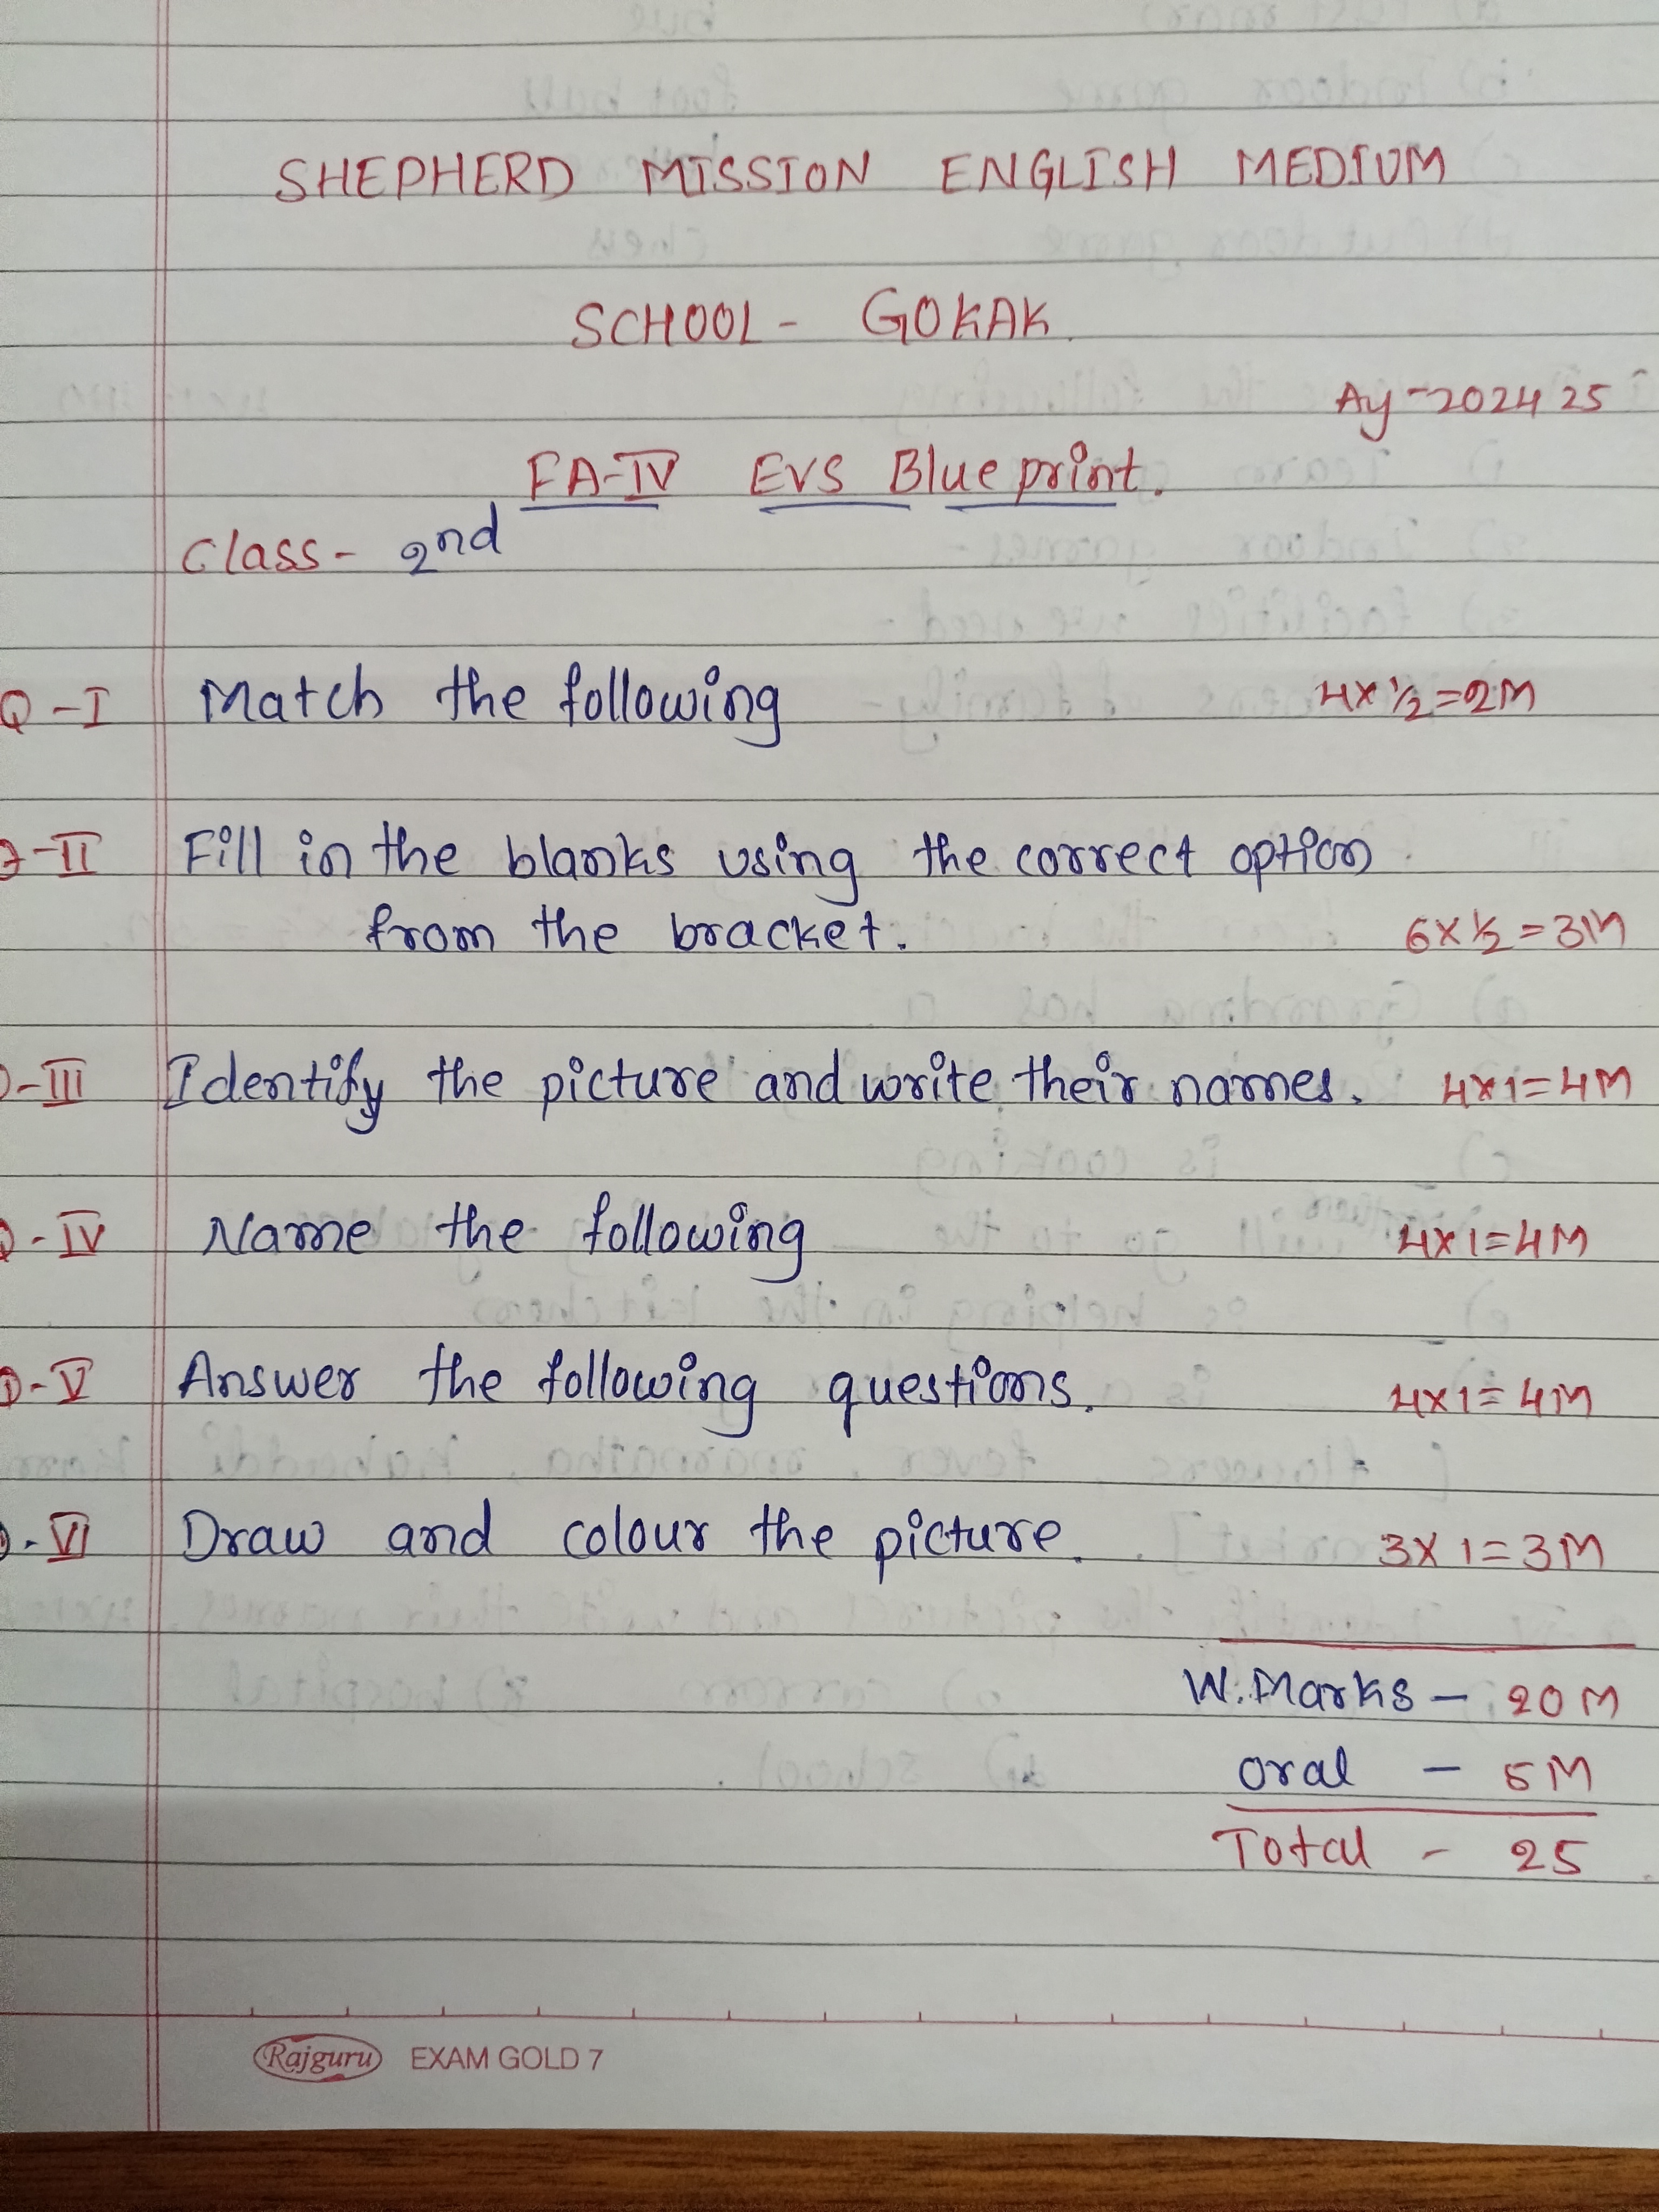 SHEPHERD MISSION ENGLISH MEDIUM
SCHOOL - GOKAK
Ay-2024 25
FA-IV EVS Blue print.
Class - 2nd
Q-I Match the following 4x½=2M
Q-II Fill in the blanks using the correct option
from the bracket. 6x½=3M
Q-III Identify the picture and write their names. 4x1=4M
Q-IV Name the following 4x1=4M
Q-V Answer the following questions. 4x1=4M
Q-VI Draw and colour the picture. 3x1=3M
W.Marks - 20M
Oral - 5M
Total - 25
Rajguru EXAM GOLD 7